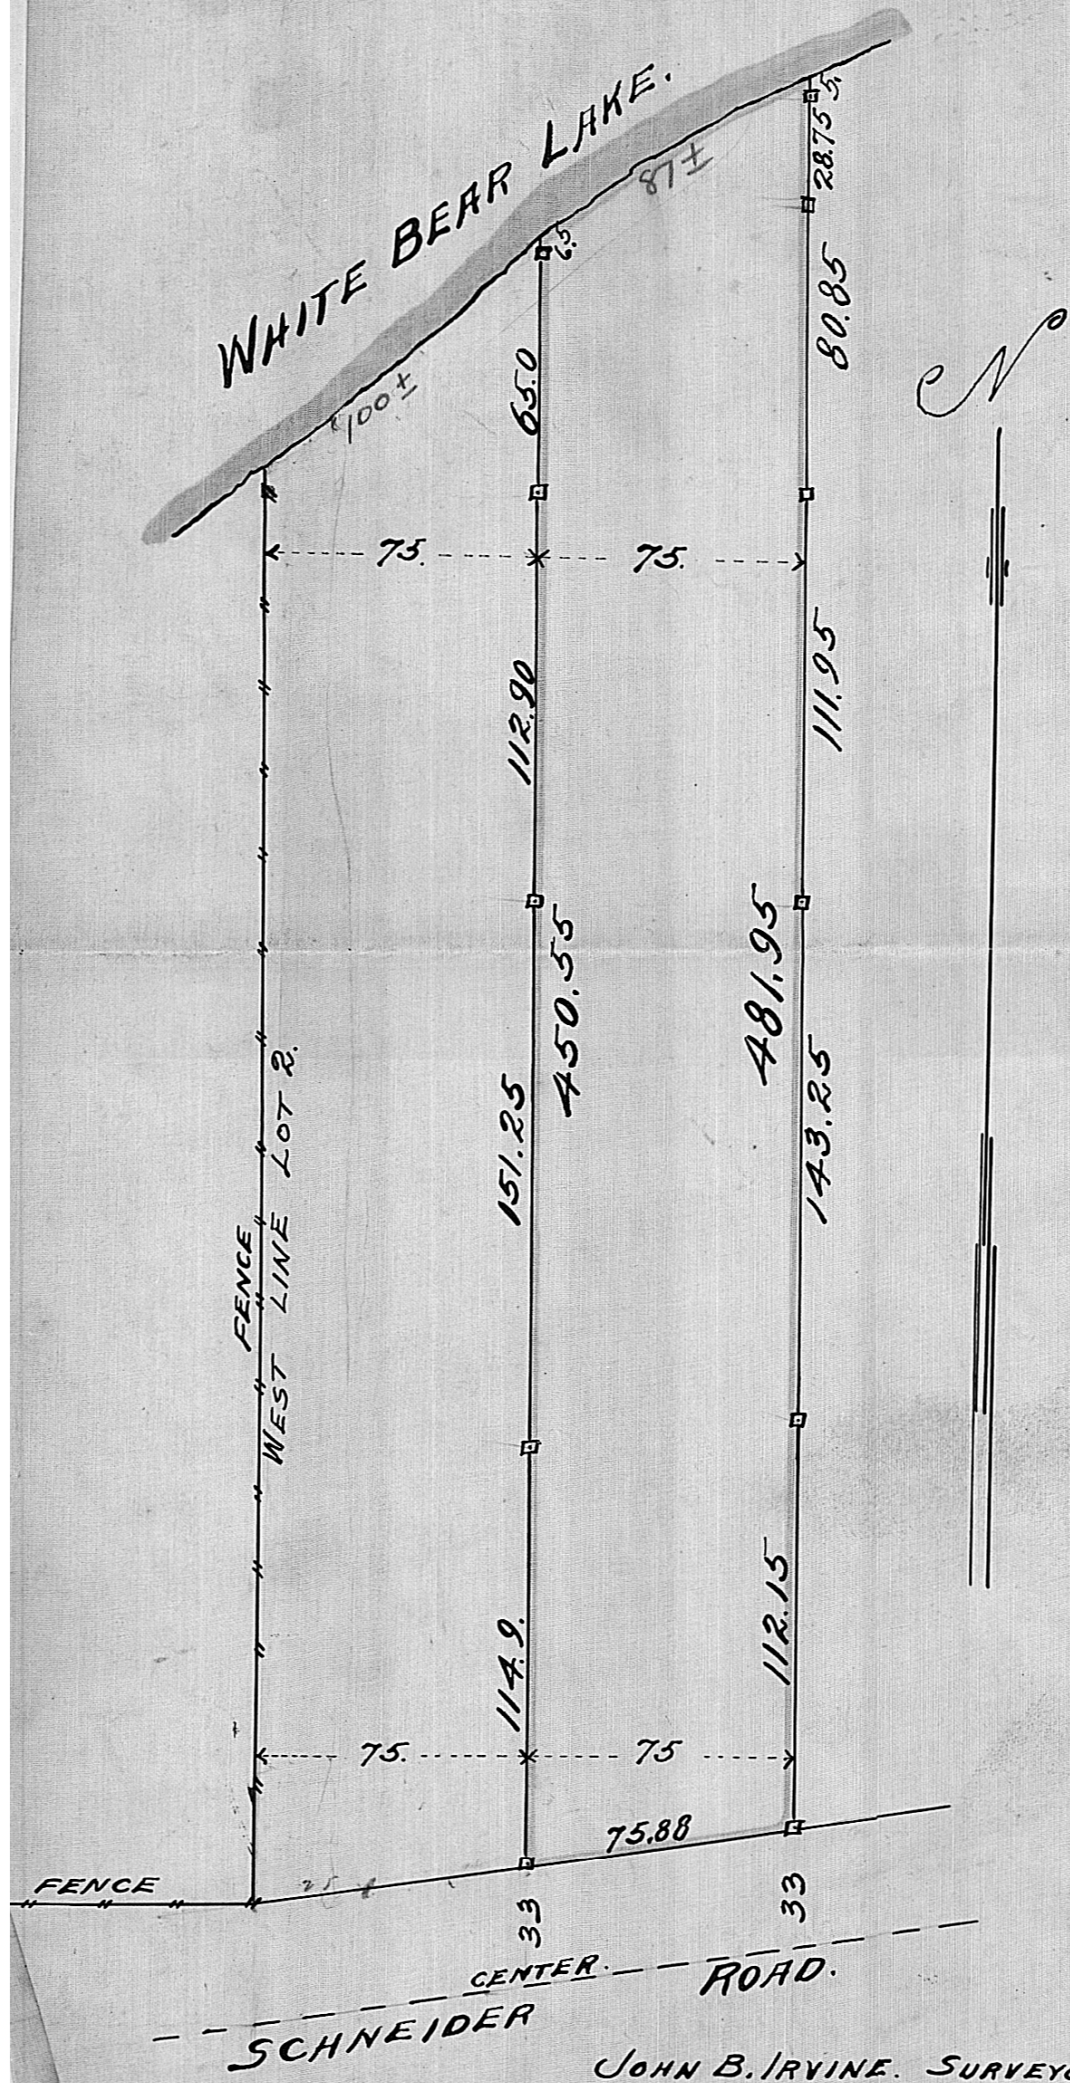 WHITE BEAR LAKE.
5.
28.75
87±
6.5
80.85
N
65.0
100±
75. 75.
112.90
111.95
450.55
481.95
151.25
143.25
FENCE
WEST LINE LOT 2.
114.9.
112.15
75. 75
75.88
FENCE
33
33
CENTER.
SCHNEIDER ROAD.
JOHN B. IRVINE. SURVEYO